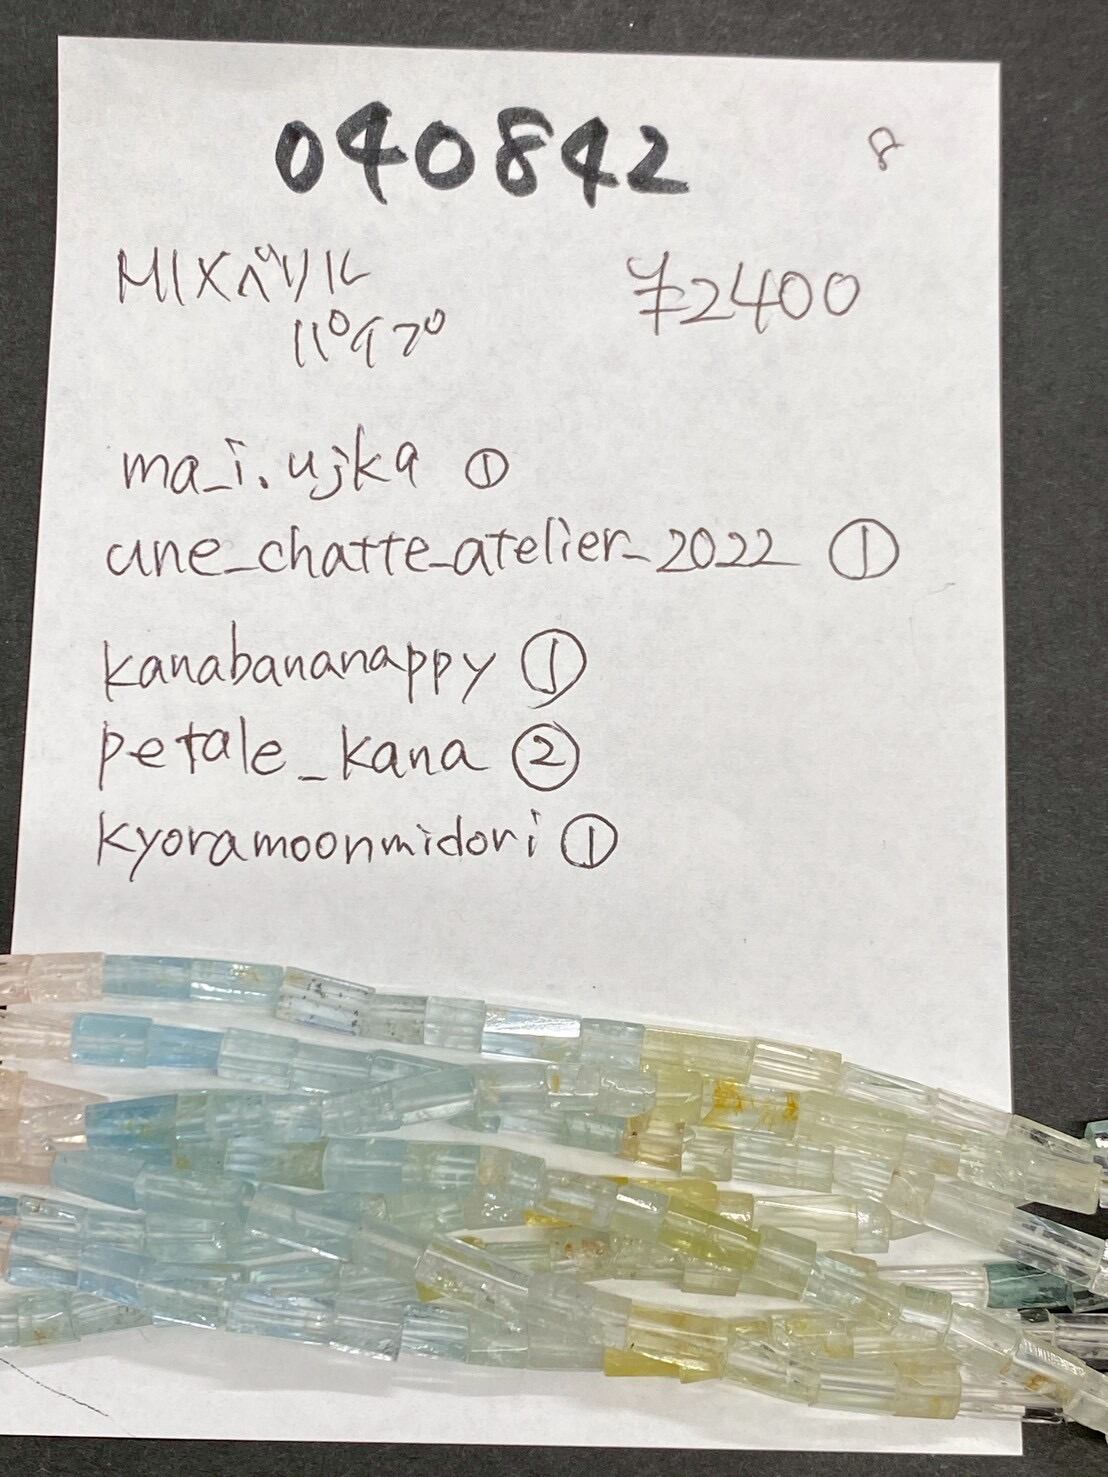 040842 8
MIXベリル ¥2400
パイプ
ma_i.ujka ①
une_chatte_atelier_2022 ①
kanabananappy ①
petale_kana ②
kyoramoonmidori ①